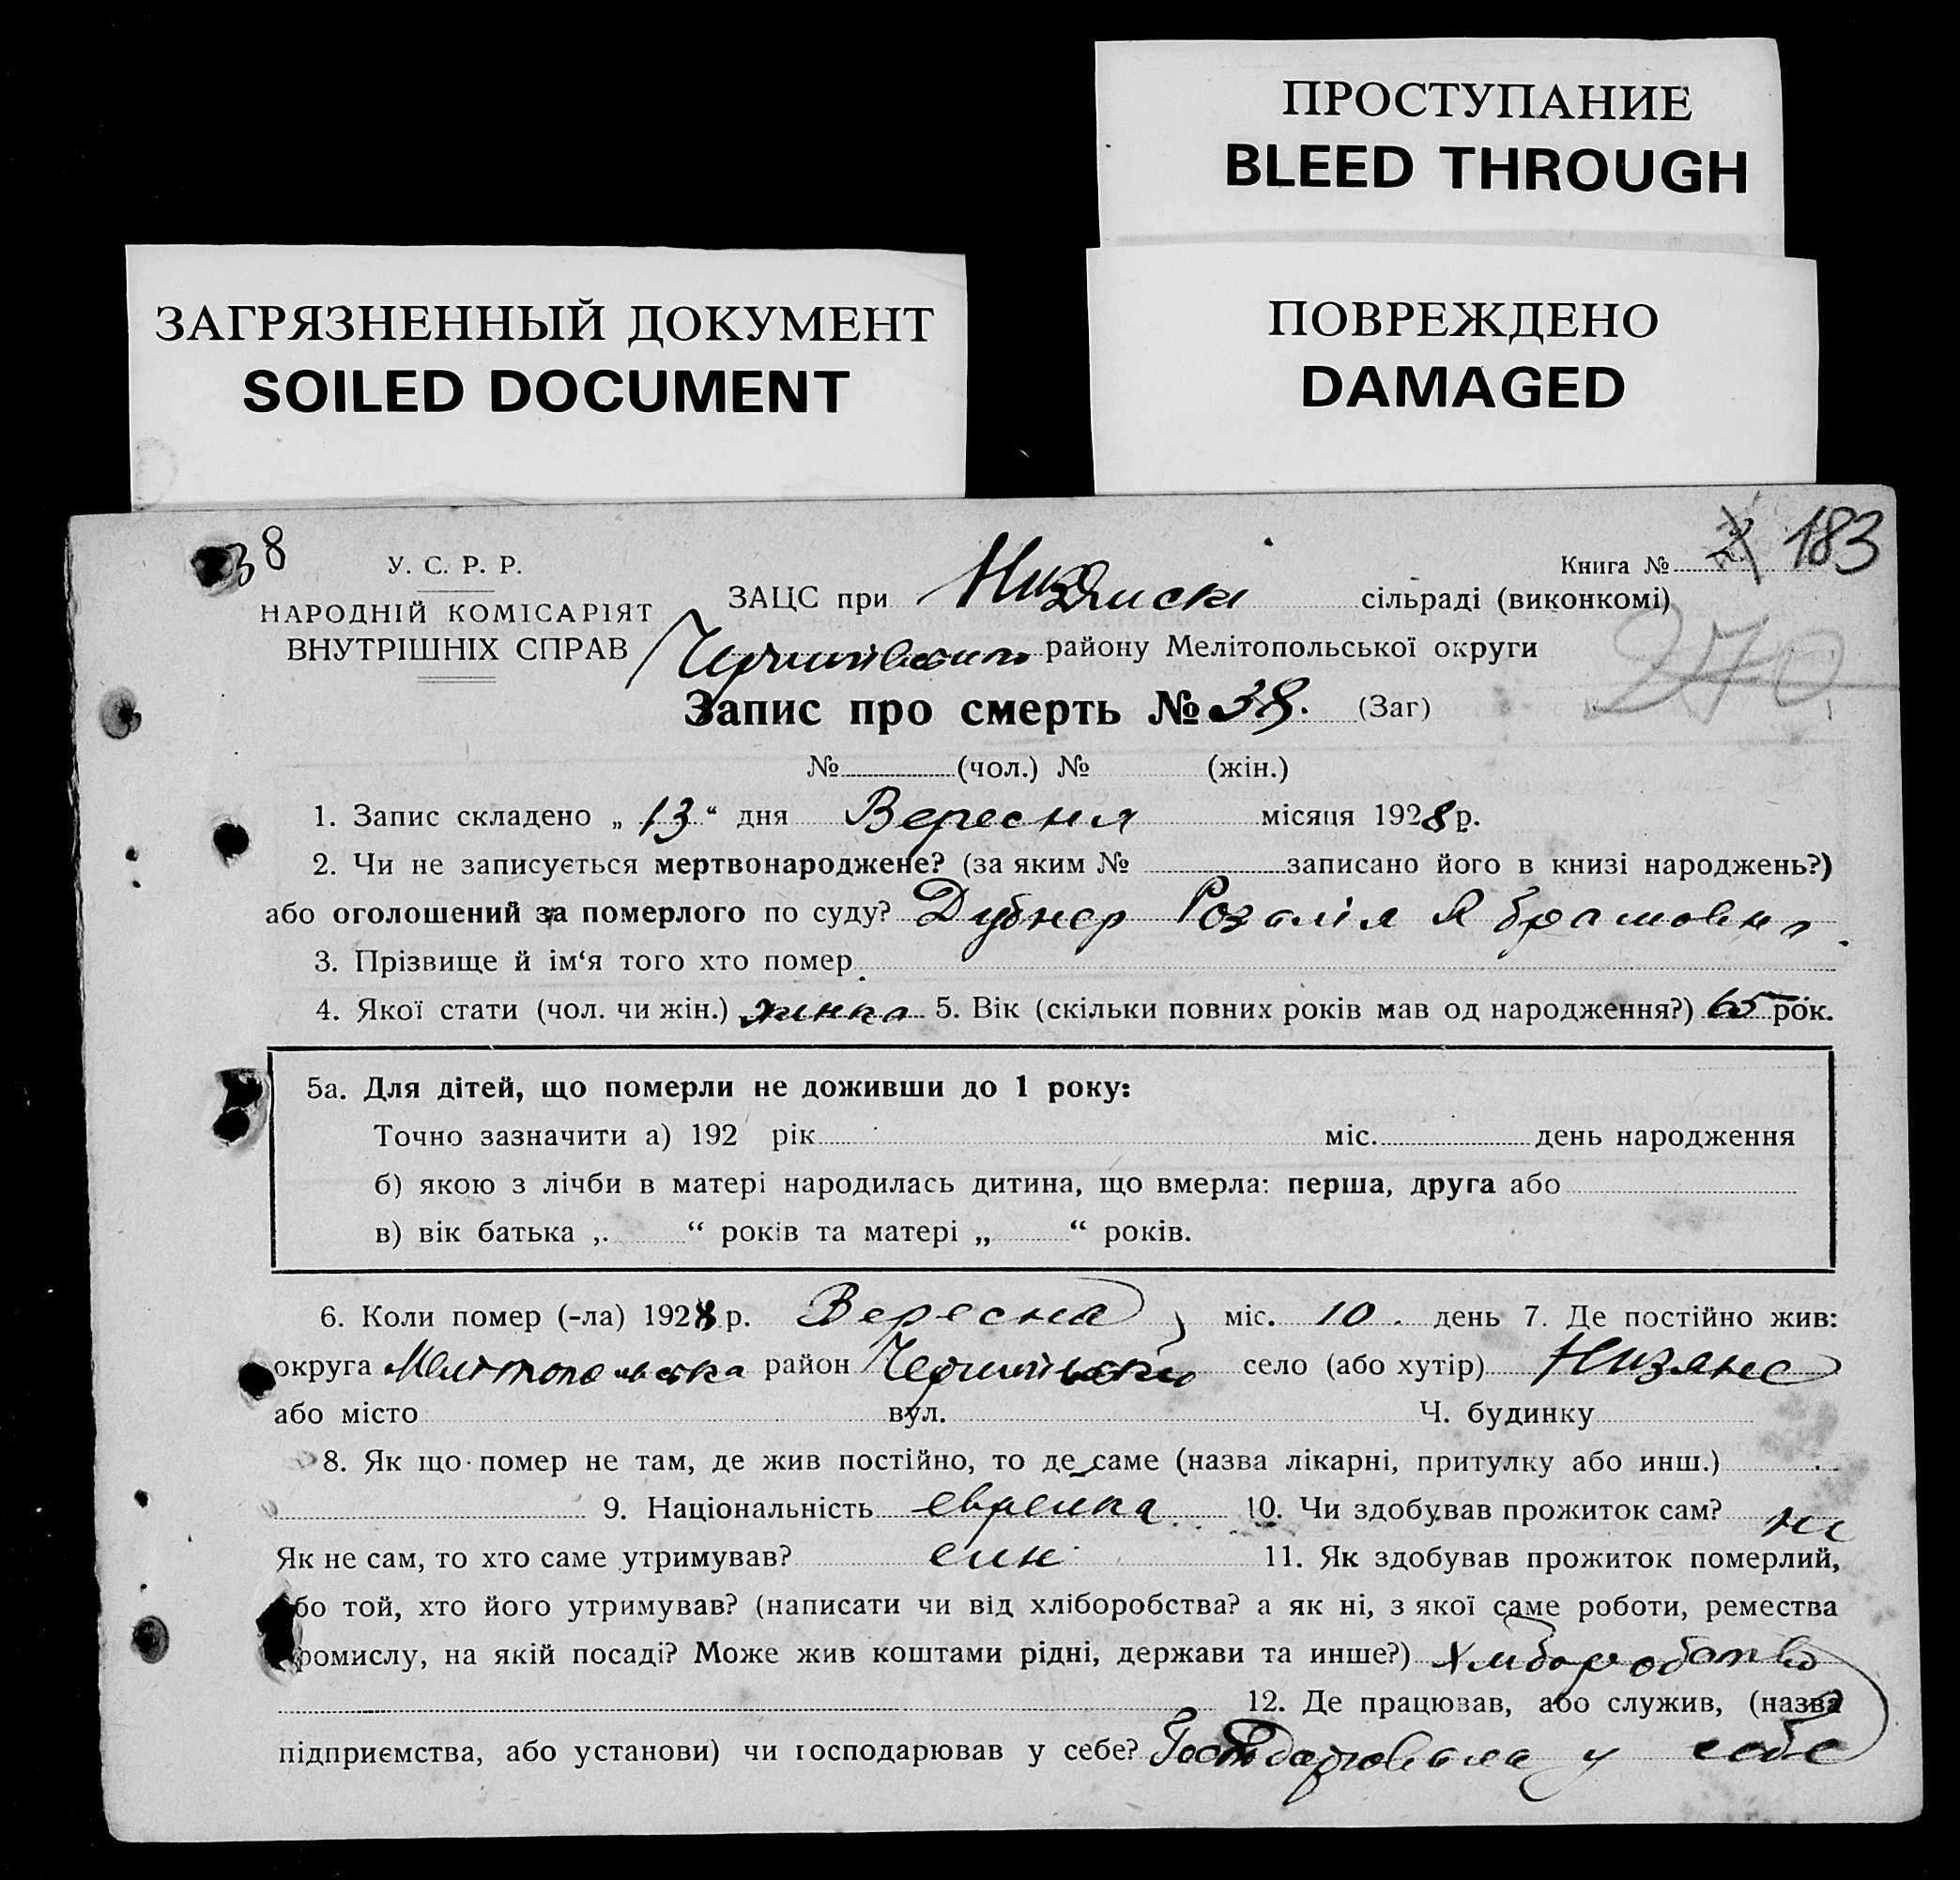 ПРОСТУПАНИЕ
BLEED THROUGH
ЗАГРЯЗНЕННЫЙ ДОКУМЕНТ
SOILED DOCUMENT
ПОВРЕЖДЕНО
DAMAGED
38
У. С. Р. Р.
НАРОДНІЙ КОМІСАРІЯТ
ВНУТРІШНІХ СПРАВ
Книга № 183
ЗАЦС при сільраді (виконкомі)
270
району Мелітопольської округи
Запис про смерть № 38. (Заг)
№ (чол.) № (жін.)
1. Запис складено „ 13 “ дня Вересня місяця 1928 р.
2. Чи не записується мертвонароджене? (за яким № записано його в книзі народжень?)
або оголошений за померлого по суду? Дубнер Розалія Абрамовна
3. Прізвище й ім‘я того хто помер
4. Якої стати (чол. чи жін.) жинка 5. Вік (скільки повних років мав од народження?) 65 рок.
5а. Для дітей, що померли не доживши до 1 року:
Точно зазначити а) 192 рік міс. день народження
б) якою з лічби в матері народилась дитина, що вмерла: перша, друга або
в) вік батька ,. “ років та матері „ “ років.
6. Коли помер (-ла) 1928 р. Вересна міс. 10. день 7. Де постійно жив:
округа Мелітопольська район село (або хутір) Низяне
або місто вул. Ч. будинку
8. Як що помер не там, де жив постійно, то де саме (назва лікарні, притулку або инш.)
9. Національність еврейка 10. Чи здобував прожиток сам? ні
Як не сам, то хто саме утримував? син 11. Як здобував прожиток померлий,
бо той, хто його утримував? (написати чи від хліборобства? а як ні, з якої саме роботи, ремества
ромислу, на якій посаді? Може жив коштами рідні, держави та инше?) Хлиборобство
12. Де працював, або служив, (назва
підприємства, або установи) чи господарював у себе? Господарювала у себе